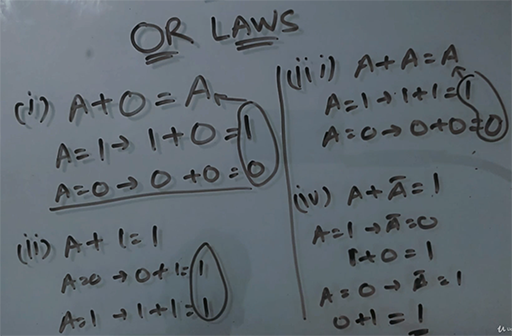 OR LAWS
(i) A + 0 = A
A=1 → 1 + 0 = 1
A=0 → 0 + 0 = 0
(ii) A + 1 = 1
A=0 → 0+1=1
A=1 → 1+1=1
(iii) A + A = A
A=1 → 1+1=1
A=0 → 0+0=0
(iv) A + Ā = 1
A=1 → Ā=0
1+0=1
A=0 → Ā=1
0+1=1